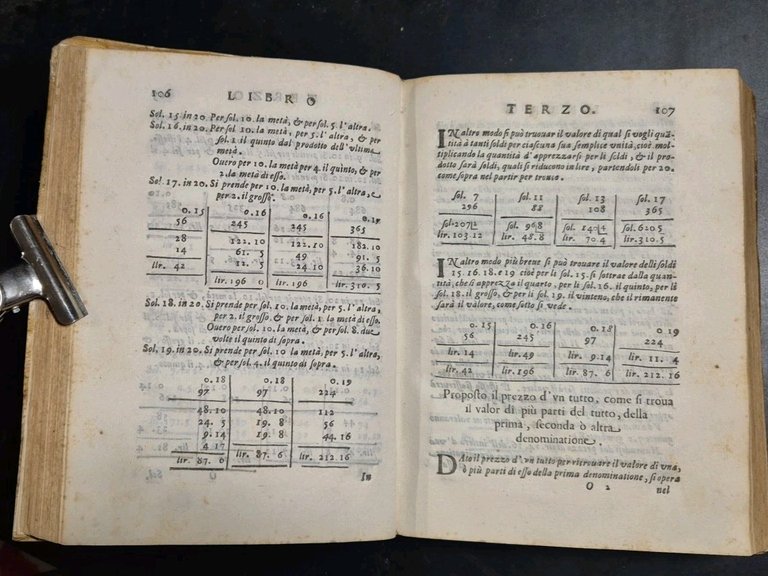 106 LIBRO
Sol. 15 in 20. Per sol. 10. la metà, & per sol. 5. l'altra.
Sol. 16. in 20. Per sol. 10. la metà, per 5. l'altra, & per
sol. 1. il quinto dal prodotto dell'vltima
metà.
Ouero per 10. la metà per 4. il quinto, & per
2. la metà di esso.
Sol. 17. in 20. Si prende per 10. la metà, per 5. l'altra, e
per 2. il grosso.
0. 15 0. 16 0. 16 0. 17
56 245 245 365
28 122. 10 122. 10 182. 10
14 61. 5 49 91. 5
lir. 42 12. 5 24. 10 36. 10
lir. 196 0 lir. 196 lir. 310. 5
Sol. 18. in 20. Si prende per sol. 10. la metà, per 5. l'altra,
per 2. il grosso & per sol. 1. la metà di esso.
Ouero per sol. 10. la metà, & per sol. 8. du
volte il quinto di sopra.
Sol. 19. in 20. Si prende per sol. 10 la metà, per 5. l'altra,
& per sol. 4. il quinto di sopra.
0. 18 0. 18 0. 19
97 97 224
48. 10 48. 10 112
24. 5 19. 8 56
9. 14 19. 8 44. 16
4. 17
lir. 87. 6 lir. 87. 6 lir. 212. 16
O In
TERZO. 107
IN altro modo si può trouar il valore di qual si vogli quã-
tità à tanti soldi per ciascuna sua semplice vnità, cioè mol-
tiplicando la quantità d'apprezzarsi per li soldi, & il pro-
dotto sarà soldi, quali si riducono in lire, partendoli per 20.
come sopra nel partir per tronco.
sol. 7 sol. 11 sol. 13 sol. 17
296 88 108 365
sol. 207|2 sol. 96|8 sol. 140|4 sol. 620|5
lir. 103. 12 lir. 48. 8 lir. 70. 4 lir. 310. 5
IN altro modo più breue si può trouare il valore delli soldi
15. 16. 18. e 19 cioè per li sol. 15. si sottrae dalla quan-
tità, che si apprezza il quarto, per li sol. 16. il quinto, per li
sol. 18. il grosso, & per li sol. 19. il vinteno, che il rimanente
sarà il valore, come sotto si vede.
0. 15 0. 16 0. 18 0. 19
56 245 97 224
lir. 14 lir. 49 lir. 9. 14 lir. 11. 4
lir. 42 lir. 196 lir. 87. 6 lir. 212. 16
Proposto il prezzo d'vn tutto, come si troua
il valor di più parti del tutto, della
prima, seconda ò altra
denominatione.
DAto il prezzo d'vn tutto per ritrouare il valore di vna,
ò più parti di esso della prima denominatione, si opera
O 2 nel